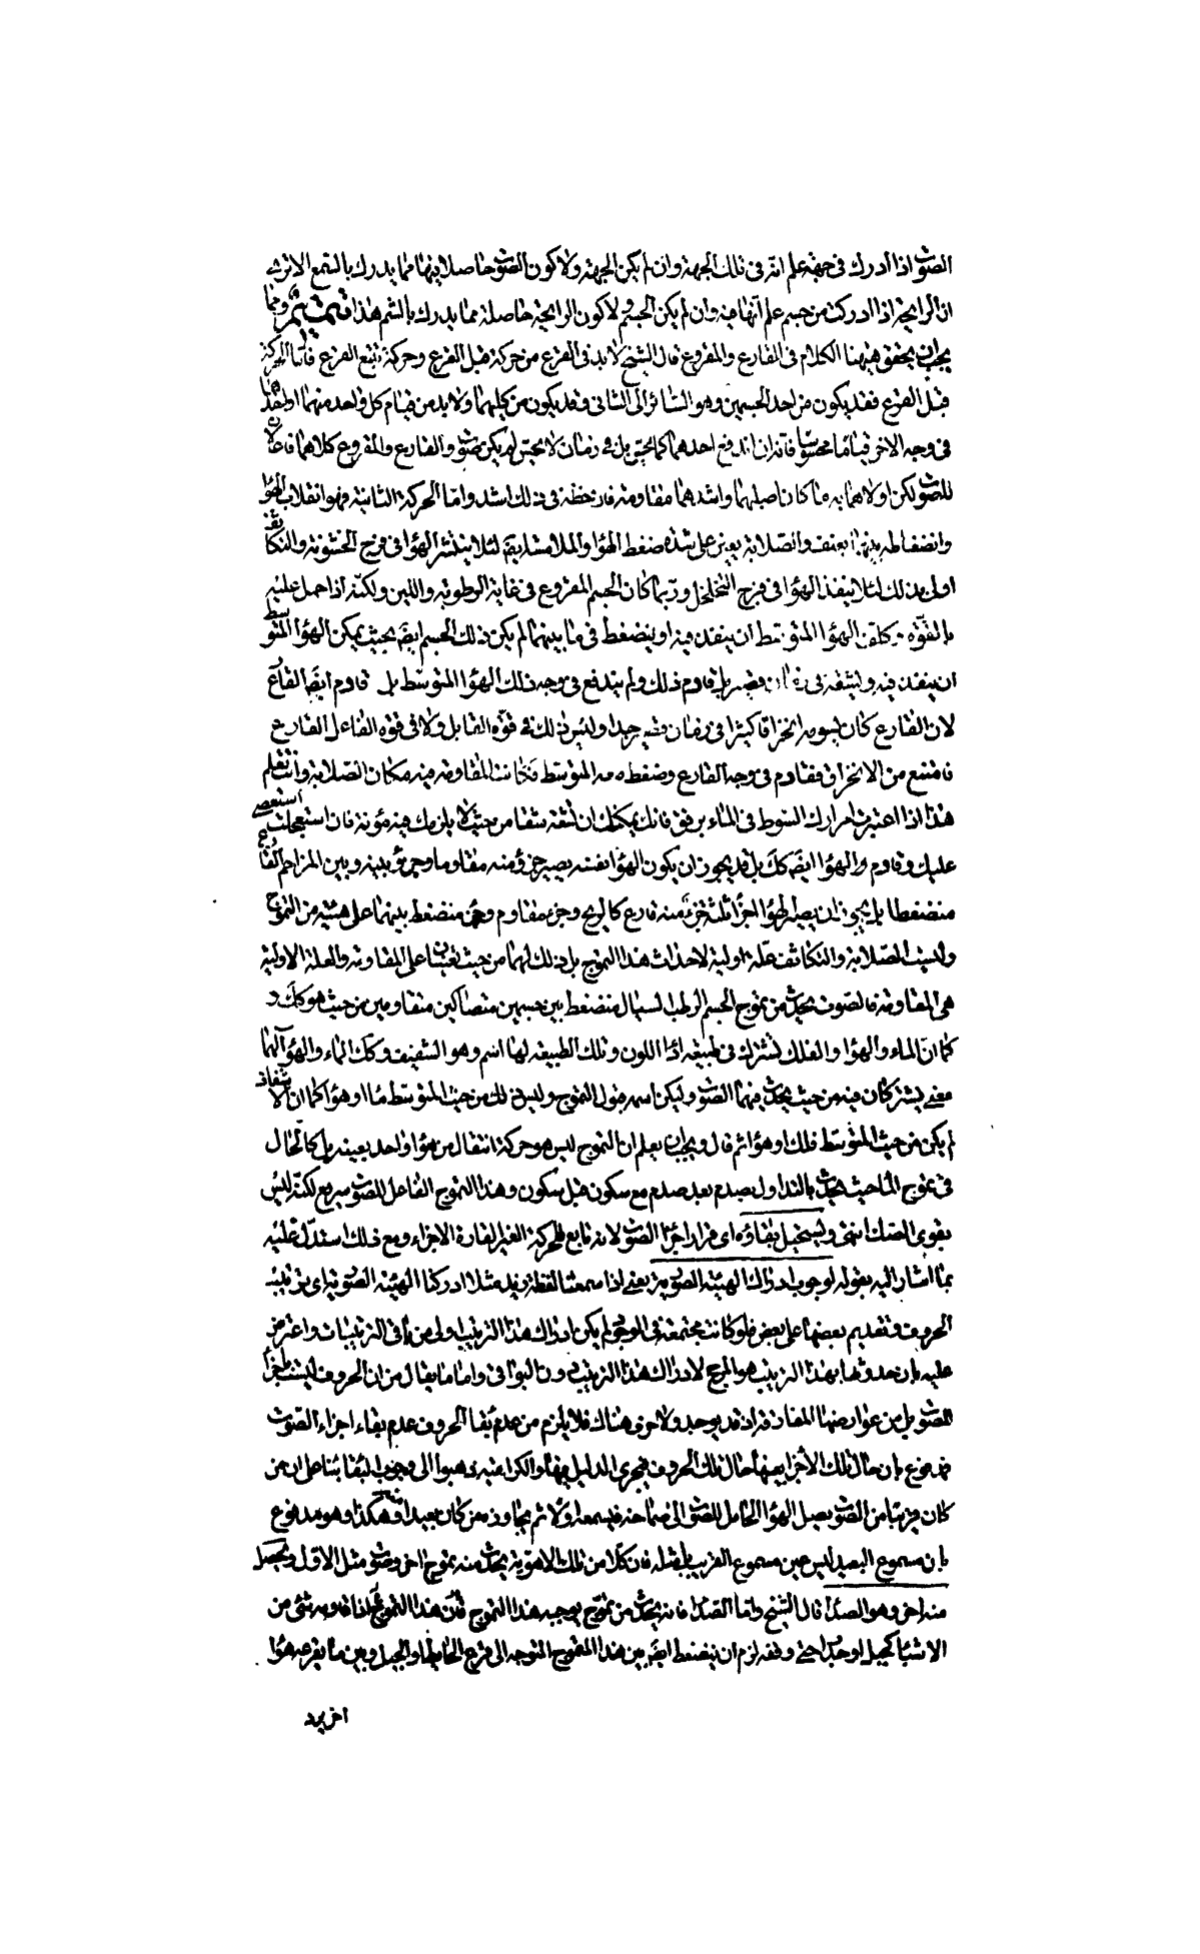 الصوت اذا ادرك فى جهة علم انه فى تلك الجهة وان لم يكن الجهة ولا كون الصوت حاصلا فيها مما يدرك بالسمع الا ترى
ان الرايحة اذا ادركت من جسم علم انها فيه وان لم يكن الجسم ولا كون الرايحة حاصلة مما يدرك بالشم هذا ومما
يجب ان يحقق هيهنا الكلام فى القارع والمقروع قال الشيخ لا بد فى القرع من حركة قبل القرع وحركة تتبع القرع فاما الحركة
قبل القرع فقد يكون من احد الجسمين وهو السائر الى الثانى وقد يكون من كليهما ولا بد من قيام كل واحد منهما او احدهما
فى وجه الاخر قياما محسوسا فانه ان اندفع احدهما كما يحس بل فى زمان لا يحس لم يكن صوت والقارع والمقروع كلاهما فاعلان
للصوت لكن اولاهما به ما كان اصلبهما واشدهما مقاومة فان حظه فى ذلك اشد واما الحركة الثانية فهو انقلاب الهواء
وانضغاطه بينهما بعنف والصلابة يعين على شدة ضغط الهواء والملاسة ايضَ لئلا ينتشر الهواء فى فرج الخشونة والتكاثف
اولى بذلك لئلا ينفذ الهواء فى فرج التخلخل وربما كان الجسم المقروع فى غاية الرطوبة واللين ولكنه اذا حمل عليه
بالقوة وكلف الهواء المتوسط ان ينفذ فيه او ينضغط فى ما بينهما لم يكن ذلك الجسم ايضَ بحيث يمكن الهواء المتوسط
ان ينفذ فيه ويشقه فى زمان قصير بل قاوم ذلك ولم يندفع فى وجه ذلك الهواء المتوسط بل قاوم ايضَ القارع
لان القارع كان يسومه انخراقا كثيرا فى زمان قصير جدا وليس ذلك فى قوة القابل ولا فى قوة الفاعل القارع
فامتنع من الانخراق فقاوم فى وجه القارع وضغط معه المتوسط فكانت المقاومة فيه مكان الصلابة وانت تعلم
هذا اذا اعتبرت امرارك السوط فى الماء برفق فانك يمكنك ان تشقه شقا من حيث لا يلزمك فيه مؤنة فان استعجلت استعصى
عليك وقاوم والهواء ايضَ كك بل قد يجوز ان يكون الهواء نفسه يصير جزؤ منه مقاوما وجزؤ بينه وبين المزاحم القارع
منضغطا بل يجوز ان يصير الهواء اجزاء ثلثة جزء منه قارع كالريح وجزء مقاوم وجزء منضغط بينهما على هيئة من التموج
وليست الصلابة والتكاثف علة اولية لاحداث هذا التموج بل ذلك لهما من حيث تعينان على المقاومة والعلة الاولية
هى المقاومة فالصوت يحدث من تموج الجسم الرطب السيال منضغط بين جسمين متصاكين متقاومين من حيث هو كك و
كما ان الماء والهواء والفلك تشترك فى طبيعة اداء اللون وتلك الطبيعة لها اسم وهو الشفيف وكك الماء والهواء لهما
معنى يشتركان فيه من حيث يحدث فيهما الصوت وليكن اسمه قبول التموج وليس ذلك من حيث المتوسط ماء او هواء كما ان الاشفاف
لم يكن من حيث المتوسط فلك او هواء ثم قال ويجب ان يعلم ان التموج ليس هو حركة انتقال من هواء واحد بعينه بل كالحال
فى تموج الماء حيث يحدث بالتداول بصدم بعد صدم مع سكون قبل سكون وهذا التموج الفاعل للصوت سريع لكنه ليس
بقوى الصك انتهى ويستحيل بقاؤه اى قرار اجزاء الصوت لانه تابع للحركة الغير القارة الاجزاء ومع ذلك استدل عليه
بما اشار اليه بقوله لوجوب ادراك الهيئة الصورية يعنى اذا سمعنا لفظة زيد مثلا ادركنا الهيئة الصوتية اى ترتيب
الحروف وتقديم بعضها على بعض فلو كانت مجتمعة فى الوجود لم يكن ادراك هذا الترتيب اولى من باقى الترتيبات واعترض
عليه بان حدوثها بهذا الترتيب هو المرجح لادراك هذا الترتيب دون البواقى واما ما يقال من ان الحروف ليست اجزاء
للصوت بل من عوارضها المفارقة اذ قد يوجد ولا حرف هناك فلا يلزم من عدم بقاء الحروف عدم بقاء اجزاء الصوت
فمدفوع بان حال تلك الاجزاء بعينها حال تلك الحروف فيجرى الدليل فيها والكرامية ذهبوا الى وجوب البقاء بناء على ان من
كان قريبا من الصوت يصل الهواء الحامل للصوت الى صماخه فيسمعه اولا ثم يجاوزه من كان بعيدا وهكذا وهو مدفوع
بان مسموع البعيد ليس عين مسموع القريب بل مثله فان كلا من تلك الاهوية يحدث منه تموج اخر وصوت مثل الاول ويحصل
منه اخر وهو الصدا قال الشيخ واما الصدا فانه يحدث من تموج يوجبه هذا التموج فان هذا التموج اذا قاومه شئ من
الاشياء كجبل او جدار حتى وقفه لزم ان ينضغط ايضَ بين هذا المتموج المتوجه الى قرع الحايط او الجبل وبين ما يقرعه هواء
اخر يرد